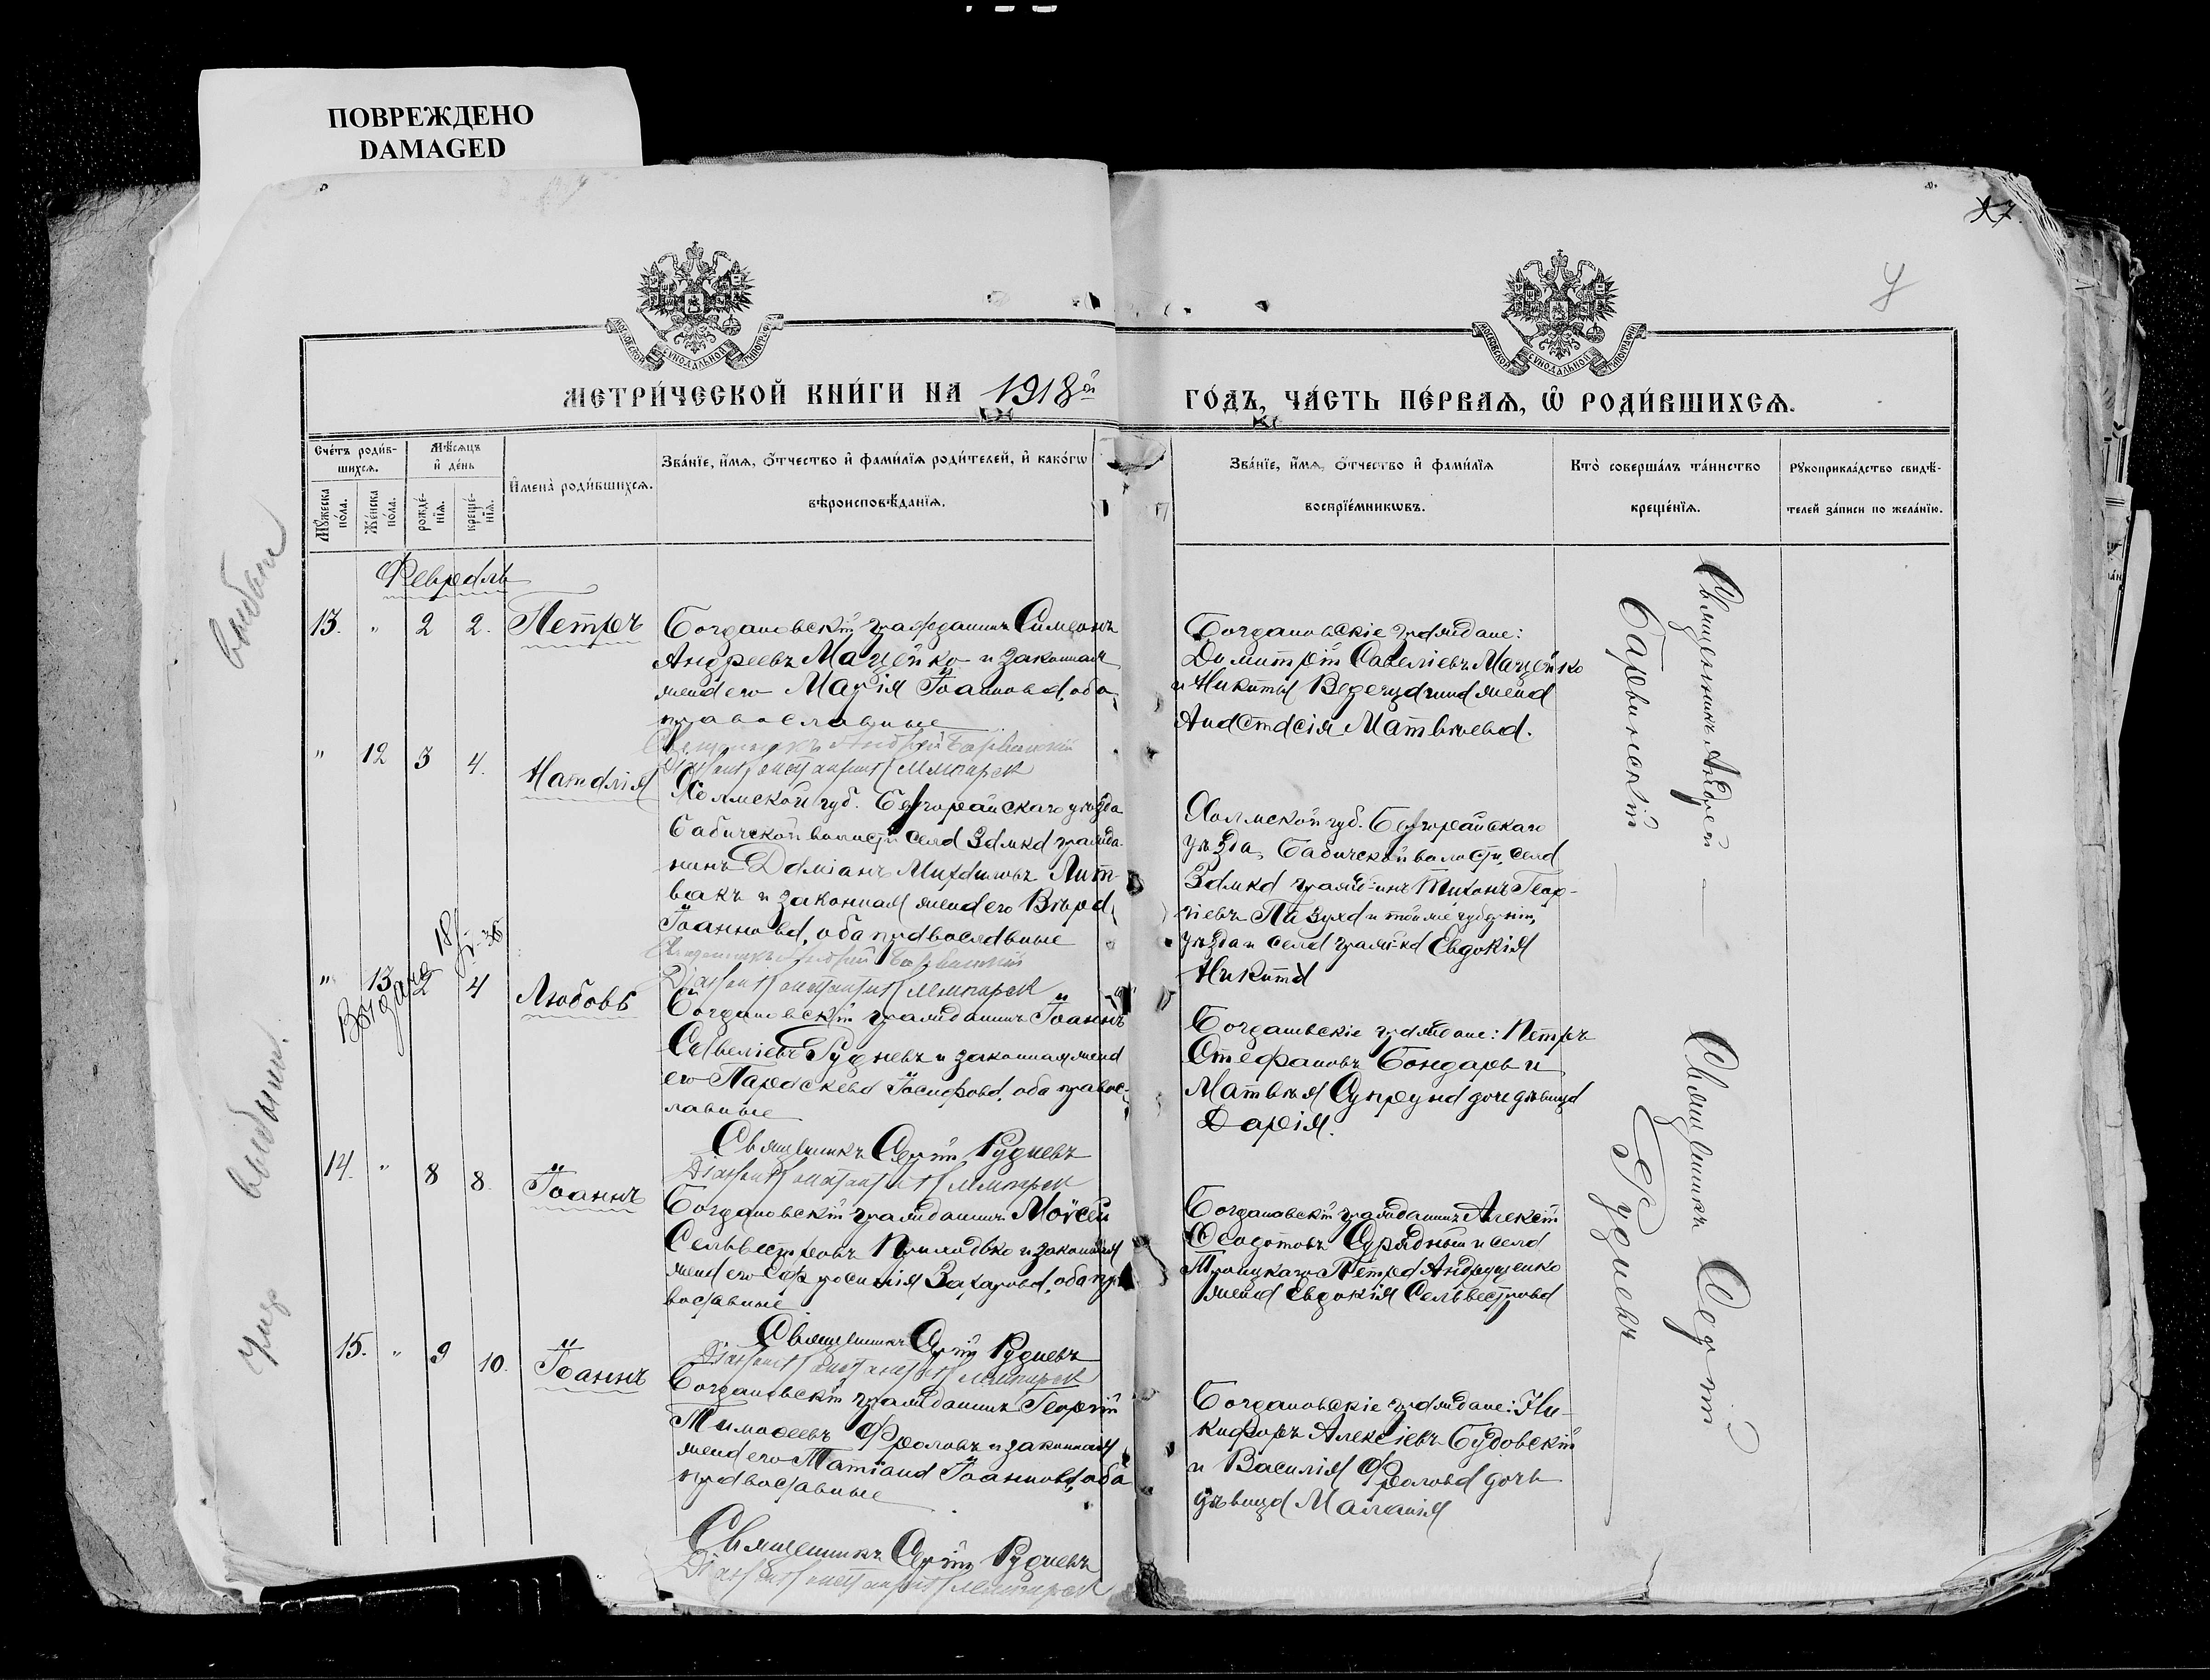 ПОВРЕЖДЕНО
DAMAGED
МЕТРИ́ЧЕСКОЙ КНИ́ГИ НА 1918й
ГО́ДЪ, ЧА́СТЬ ПЕ́РВАѦ, Ѡ҆ РОДИ́ВШИХСѦ.
Сче́тъ роди́в-
шихсѧ.
Мѣ́сѧцъ
и҆ де́нь
Му́жеска
по́ла.
Же́нска
по́ла.
рожде́-
нїѧ.
креще́-
нїѧ.
И҆мена̀ роди́вшихсѧ.
Зва́нїе, и҆́мѧ, ѻ҆́тчество и҆ фами́лїѧ роди́телей, и҆ како́гѡ
вѣроисповѣ́данїѧ.
Зва́нїе, и҆́мѧ, ѻ҆́тчество и҆ фами́лїѧ
воспрїе́мникѡвъ.
Кто̀ соверша́лъ та́инство
креще́нїѧ.
Рꙋкоприкла́дство свидѣ́-
телей за́писи по жела́нїю.
Февраль
13. " 2 2. Петръ
Богдановскій гражданинъ Симеонъ
Андреевъ Мацейко и законная
жена его Марія Іоаннова, оба
православные
Священникъ Андрей Барвинскій
Богдановскіе граждане:
Димитрій Савеліевъ Мацейко
и Никиты жена
Анастасія Матвѣева.
" 12 3 4. Наталія
Холмской губ. Бѣлгорайскаго уѣзда
Бабичской волости села Замха гражда-
нинъ Даміанъ Михаиловъ Лит-
вакъ и законная жена его Вѣра
Іоаннова, оба православные
Священникъ Андрей Барвинскій
Холмской губ. Бѣлгорайскаго
уѣзда, Бабичской волости, села
Замха гражд-инъ Тихонъ Геор-
гіевъ Пазуха и той же губерніи,
уѣзда и села гражд-ка Евдокія
Никита
" 13 2 4 Любовь
Богдановскій гражданинъ Іоаннъ
Савеліевъ Рудневъ и законная жена
его Параскева Іосифова, оба правос-
лавные
Священникъ Сергій Рудневъ
Богдановскіе граждане: Петръ
Стефановъ Бондарь и
Матвѣя Супруна дочь дѣвица
Дарія.
14. " 8 8. Іоаннъ
Богдановскій гражданинъ Моѵсей
Сельвестровъ и законная
жена его Ефросинія Захарова, оба пра
вославные
Священникъ Сергій Рудневъ
Богдановскій гражданинъ Алексій
Ѳеодотовъ и села
Троицкаго Петра Андрущенко
жена Евдокія Сельвестрова
15. " 9 10. Іоаннъ
Богдановскій гражданинъ Георгій
Тимоѳеевъ Фроловъ и законная
жена его Татіана Іоаннова, оба
православные
Священникъ Сергій Рудневъ
Богдановскіе граждане: Ни-
кифоръ Алексіевъ Будовскій
и Василія Фролова дочь
дѣвица Маланія
Священникъ Андрей
Барвинскій
Священникъ Сергій
Рудневъ